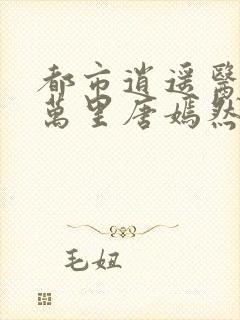 都市逍遥醫
萬里唐嫣然
毛妞